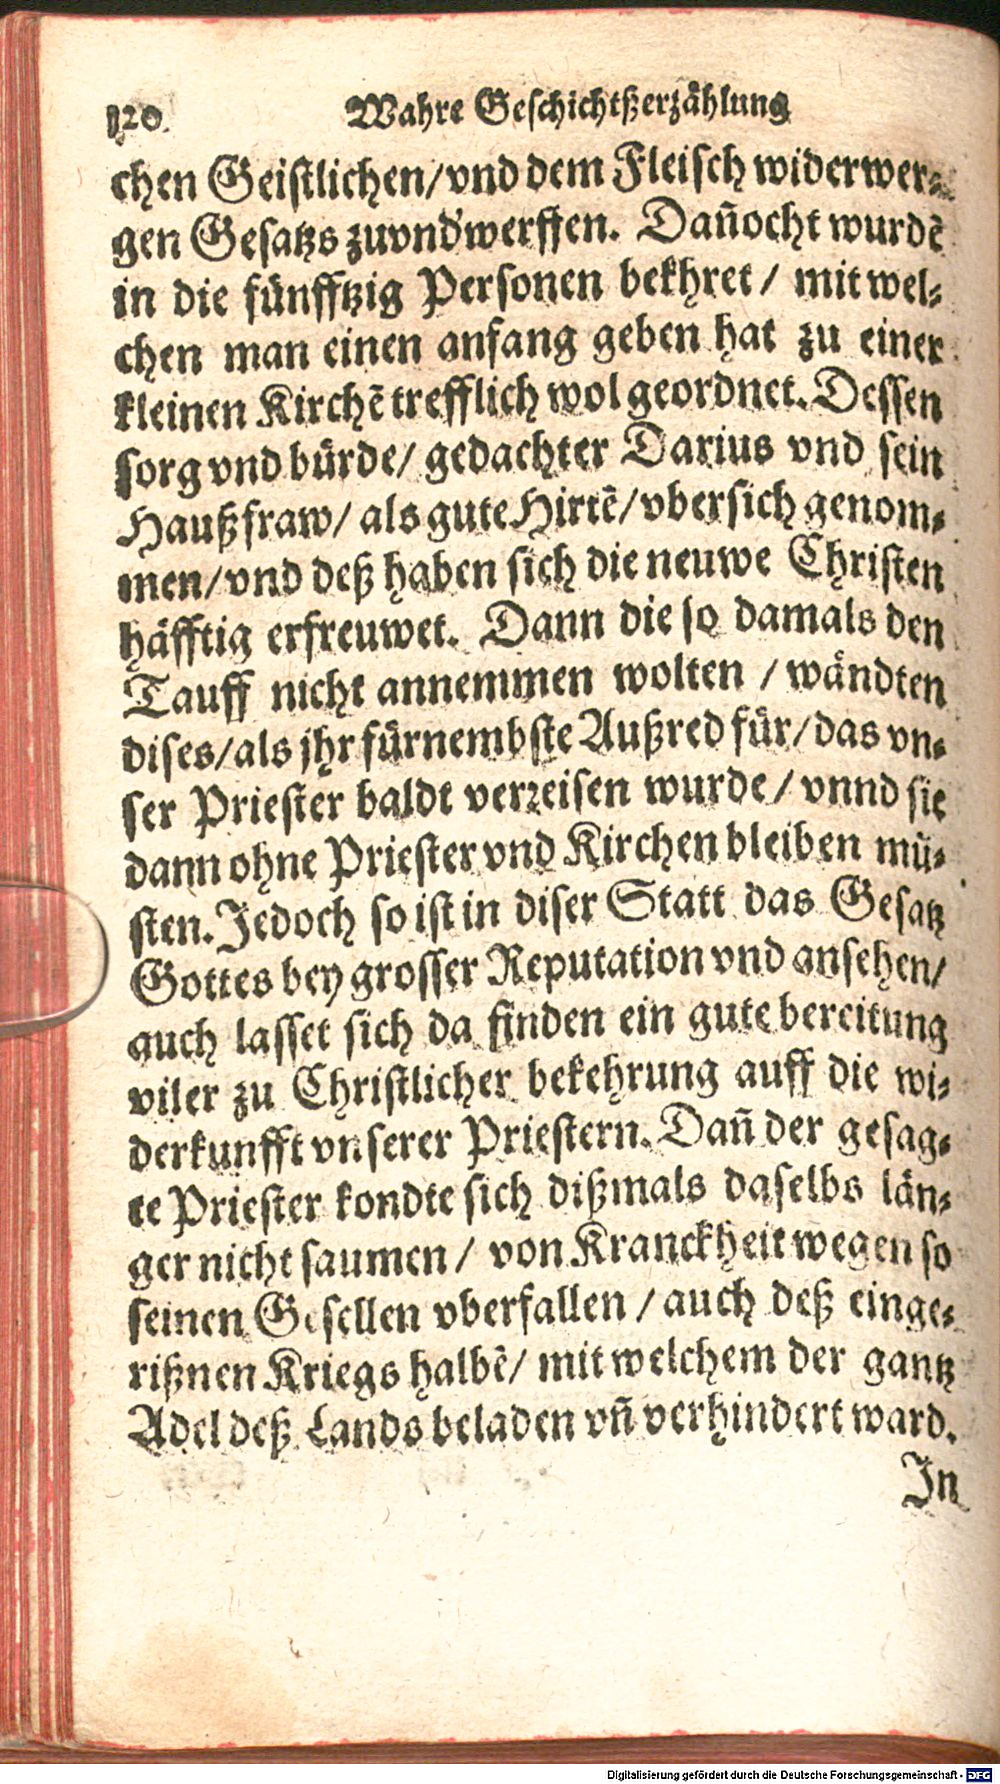 120 Wahre Geschichtßerzåhlung
chen Geistlichen/vnd dem Fleisch widerwer⸗
gen Gesatzs zuvnd'werffen. Dañocht wurdẽ
in die fünfftzig Personen bekhret/ mit wel⸗
chen man einen anfang geben hat zu einer
kleinen Kirchẽ trefflich wol geordnet. Dessen
sorg vnd bürde/ gedachter Darius vnd sein
Haußfraw/ als gute Hirtẽ/ vbersich genom⸗
men/ vnd deß haben sich die neuwe Christen
häfftig erfreuwet. Dann die so damals den
Tauff nicht annemmen wolten / wändten
dises/ als jhr fürnembste Außred für/ das vn⸗
ser Priester baldt verreisen wurde/ vnnd sie
dann ohne Priester vnd Kirchen bleiben mü⸗
sten. Jedoch so ist in diser Statt das Gesatz
Gottes bey grosser Reputation vnd ansehen/
auch lasset sich da finden ein gute bereitung
viler zu Christlicher bekehrung auff die wi⸗
derkunfft vnserer Priestern. Dañ der gesag⸗
te Priester kondte sich dißmals daselbs län⸗
ger nicht saumen/ von Kranckheit wegen so
seinen Gesellen vberfallen / auch deß einge⸗
rißnen Kriegs halbẽ/ mit welchem der gantz
Adel deß Lands beladen vñ verhindert ward.
In
Digitalisierung gefördert durch die Deutsche Forschungsgemeinschaft - DFG